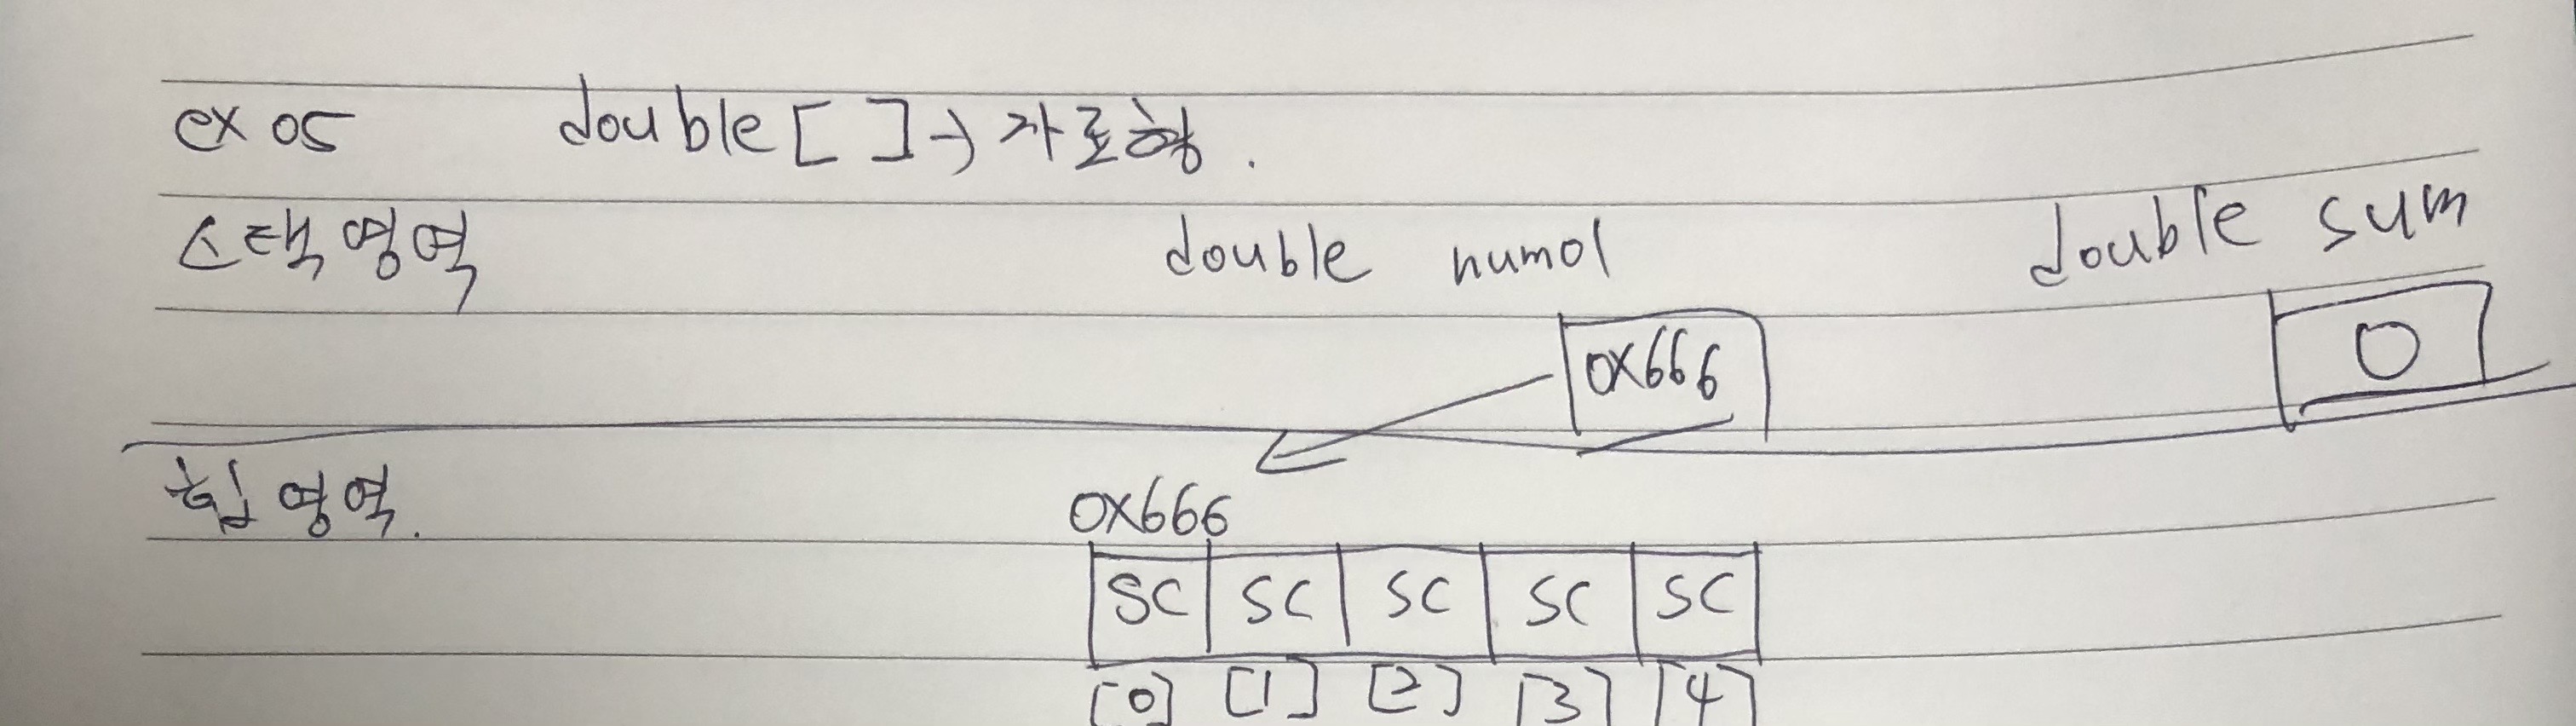 ex 05 double[ ]→자료형.
스택영역 double num01 double sum
0x666 0
힙영역.
0x666
SC SC SC SC SC
[0] [1] [2] [3] [4]